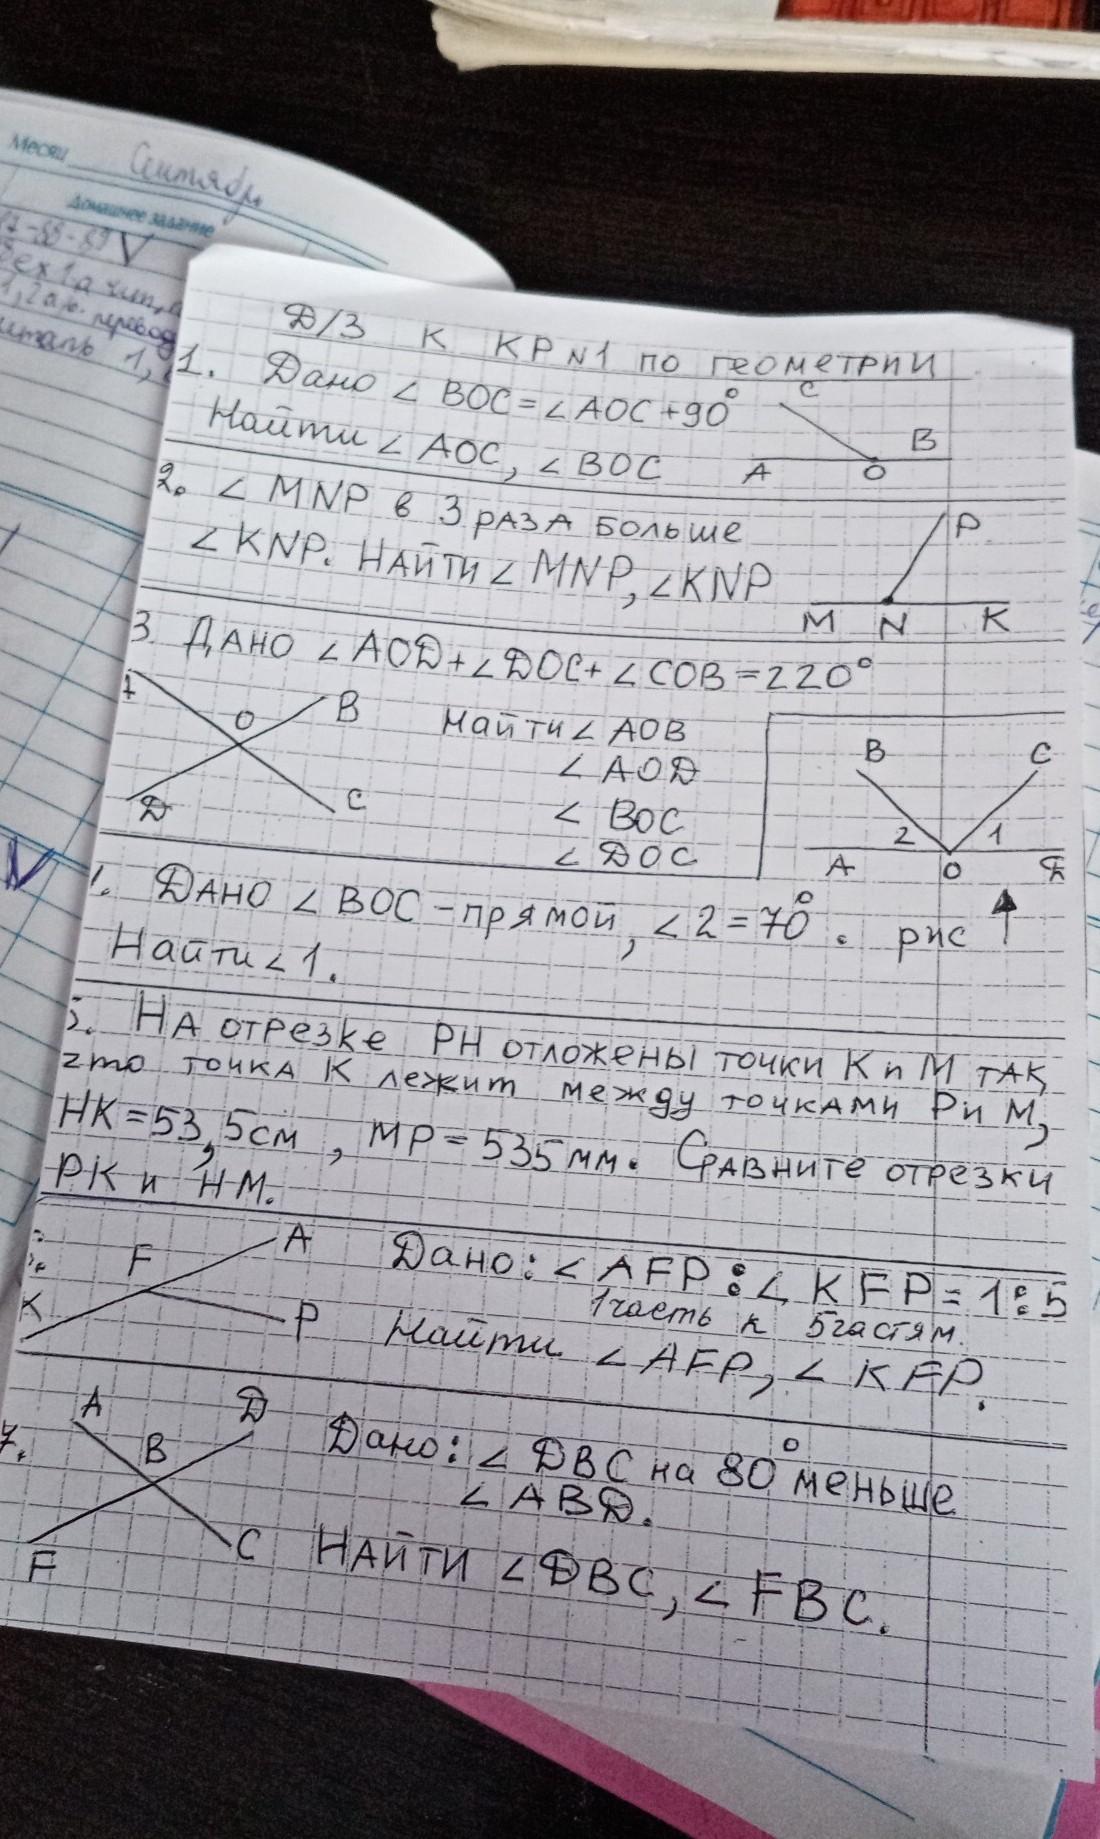 Месяц Сентябрь
Домашнее задание
Д/З К КР №1 ПО ГЕОМЕТРИИ
1. Дано ∠ BOC = ∠ AOC + 90°
Найти ∠ AOC, ∠ BOC
C
B
A
O
2. ∠ MNP в 3 раза больше
∠ KNP. Найти ∠ MNP, ∠ KNP
P
M N K
3. Дано ∠ AOD + ∠ DOC + ∠ COB = 220°
A
O
B
D
C
Найти ∠ AOB
∠ AOD
∠ BOC
∠ DOC
B
C
2 1
A O
Дано ∠ BOC – прямой, ∠ 2 = 70°. рис
Найти ∠ 1.
5. На отрезке PH отложены точки K и M так,
что точка K лежит между точками P и M,
HK = 53,5 см, MP = 535 мм. Сравните отрезки
PK и HM.
A
F
K
P
Дано: ∠ AFP : ∠ KFP = 1 : 5
1 часть к 5 частям.
Найти ∠ AFP, ∠ KFP.
7.
A
D
B
F
C
Дано: ∠ DBC на 80° меньше
∠ ABD.
Найти ∠ DBC, ∠ FBC.